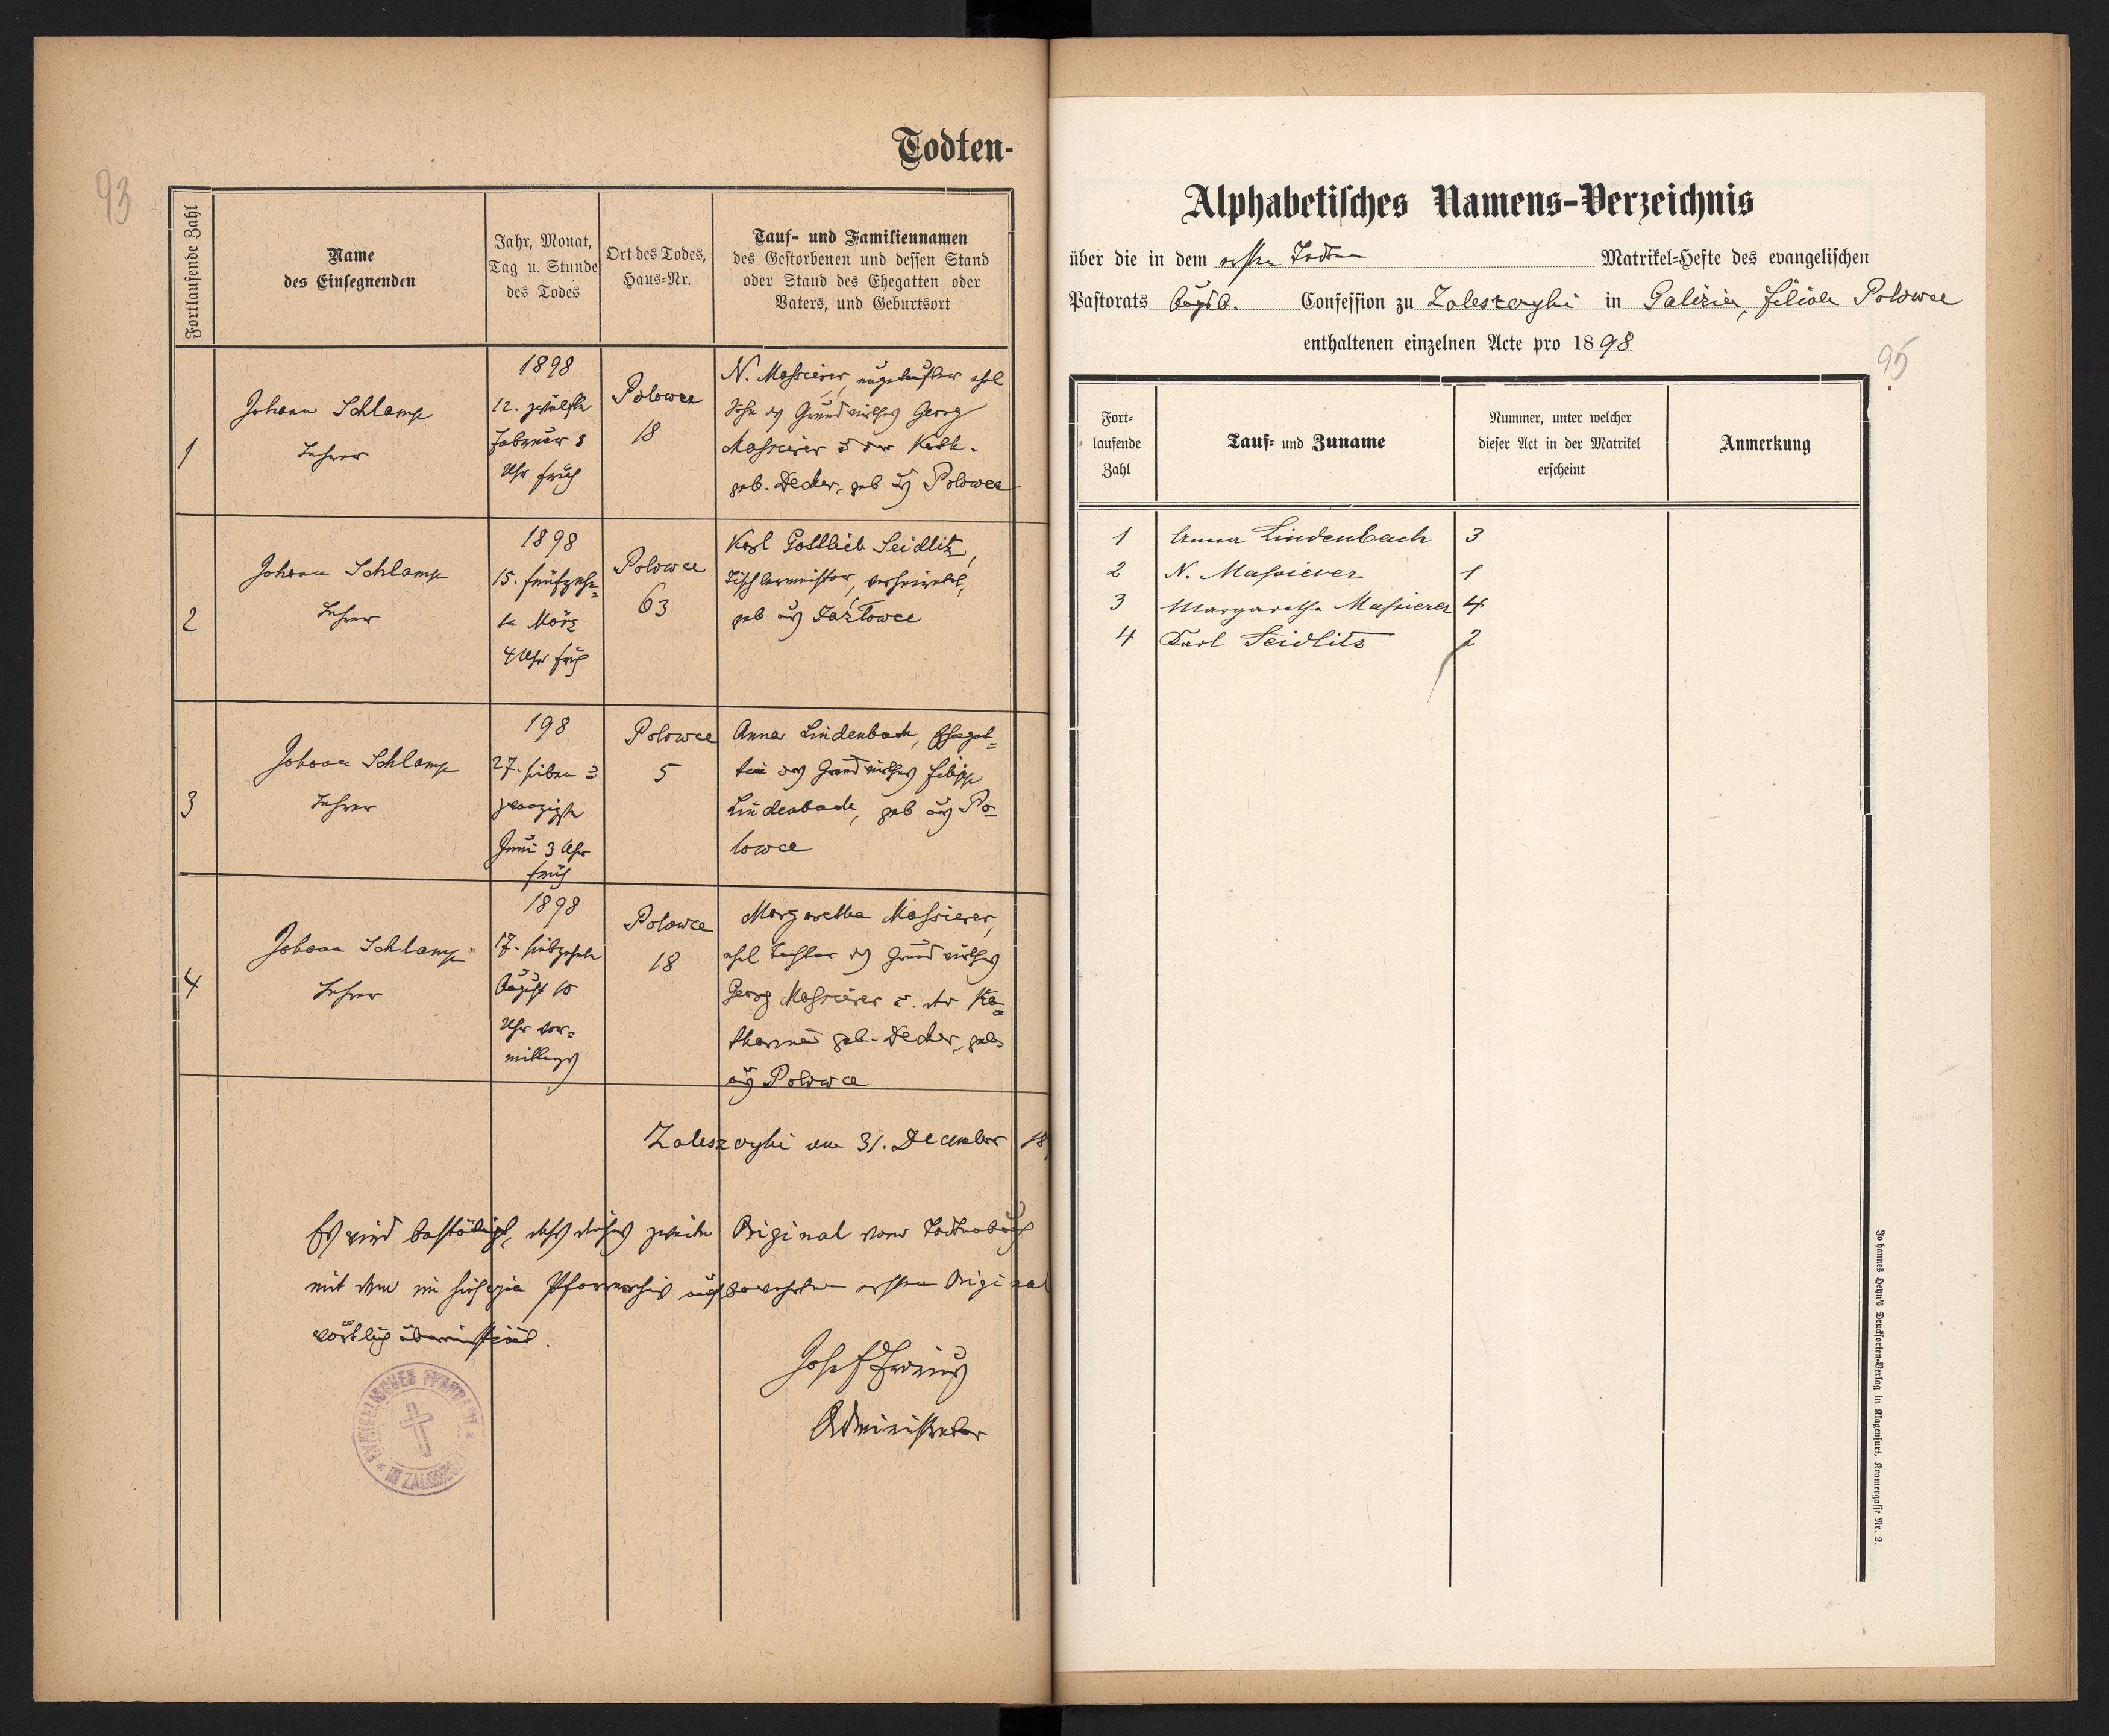 93
Todten-
Fortlaufende Zahl
Name
des Einsegnenden
Jahr, Monat,
Tag u. Stunde
des Todes
Ort des Todes,
Haus-Nr.
Tauf- und Familiennamen
des Gestorbenen und dessen Stand
oder Stand des Ehegatten oder
Vaters, und Geburtsort
1
Johann Schlamp
Lehrer
1898
12. zwölfte
Februar 8
Uhr früh
Polowce
18
N. Massierer, ungetaufter ehel
Sohn des Grundwirthes Georg
Massierer u der Kath.
geb. Decker, geb aus Polowce
2
Johann Schlamp
Lehrer
1898
15. fünfzehn=
te März
4 Uhr früh
Polowce
63
Karl Gottlieb Seidlitz,
Tischlermeister, verheiratet,
geb aus Jazlowce
3
Johann Schlamp
Lehrer
198
27. sieben u
zwanzigste
Juni 3 Uhr
früh
Polowce
5
Anna Lindenbach, Ehegat=
tin des Grundwirthes Filipp
Lindenbach, geb aus Po=
lowce
4
Johann Schlamp
Lehrer
1898
17. siebzehnte
August 10
Uhr vor=
mittags
Polowce
18
Margaretha Massierer,
ehel Tochter des Grundwirthes
Georg Massierer u. der Ka=
tharina geb. Decker, geb
aus Polowce
Zaleszczyki am 31. December 18
Es wird bestätigt, daß dieses zweite Original vom Todtenbuch
mit dem im hiesigen Pfarrarchiv aufbewahrten ersten Original
wörtlich übereinstimmt.
Josef
Administrator
EVANGELISCHES PFARRAMT
IN
Alphabetisches Namens-Verzeichnis
über die in dem ersten Todten Matrikel-Hefte des evangelischen
Pastorats Augsb. Confession zu Zaleszczyki in Galizien, Filiale Polowce
enthaltenen einzelnen Acte pro 1898
95
Fort-
laufende
Zahl
Tauf- und Zuname
Nummer, unter welcher
dieser Act in der Matrikel
erscheint
Anmerkung
1 Anna Lindenbach 3
2 N. Massierer 1
3 Margaretha Massierer 4
4 Karl Seidlitz 2
Johannes Heyn's Drucksorten-Verlag in Klagenfurt, Kramergasse Nr. 2.